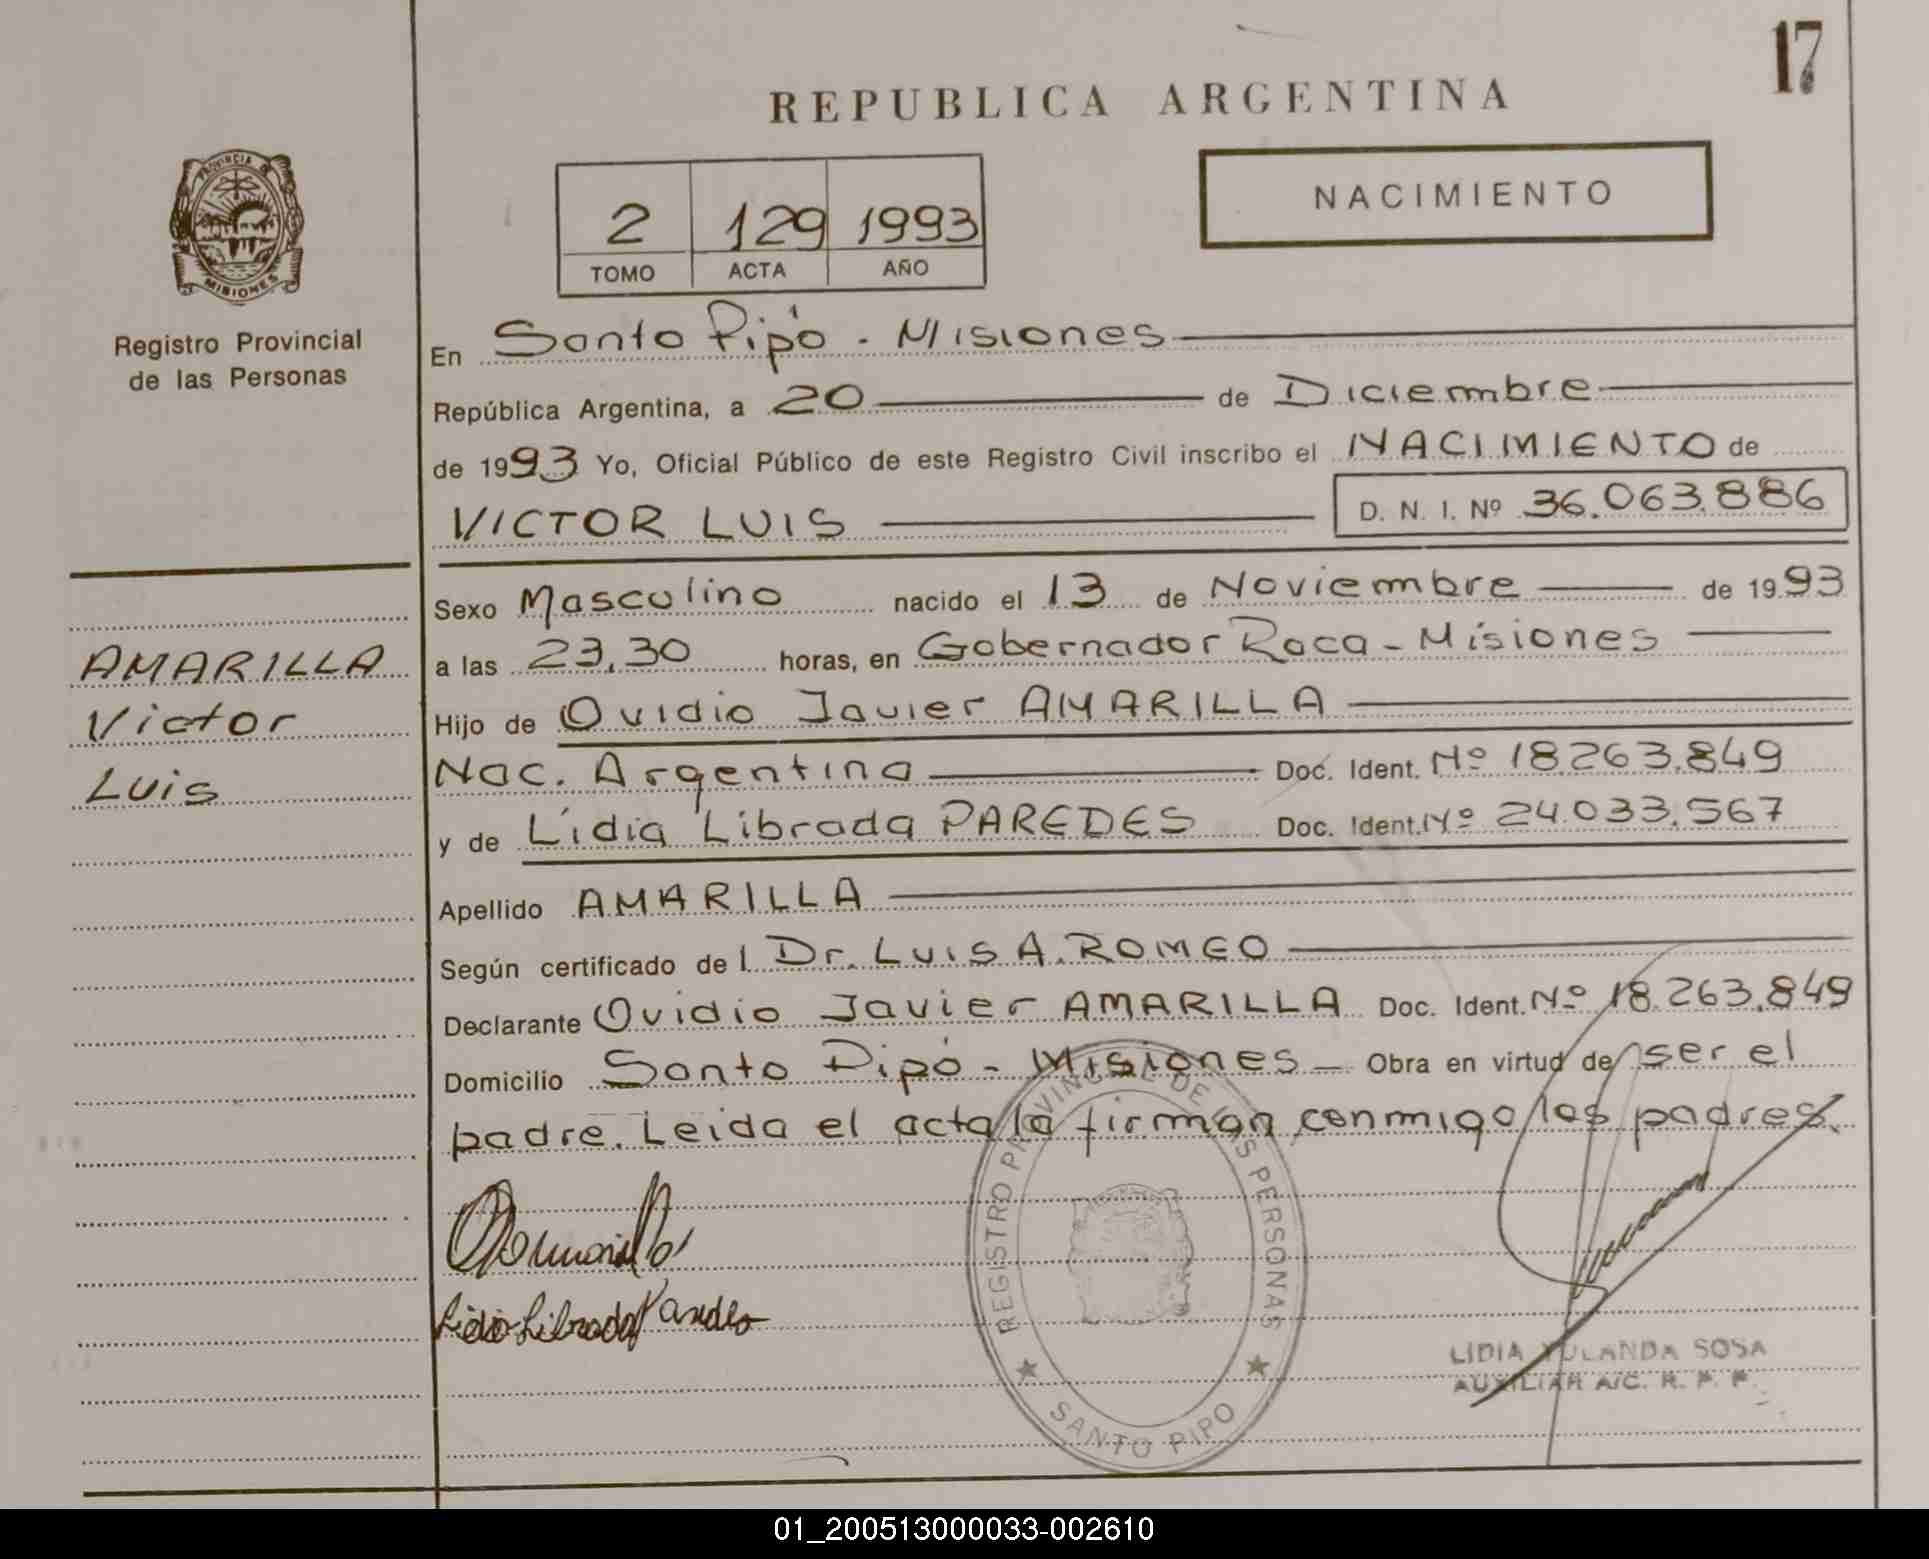 17
REPUBLICA ARGENTINA
PROVINCIA DE
MISIONES
Registro Provincial
de las Personas
2 129 1993
TOMO ACTA AÑO
NACIMIENTO
En Santo Pipó - Misiones
República Argentina, a 20 de Diciembre
de 1993 Yo, Oficial Público de este Registro Civil inscribo el NACIMIENTO de
VICTOR LUIS D. N. I. Nº 36.063.886
AMARILLA
Victor
Luis
Sexo Masculino nacido el 13 de Noviembre de 1993
a las 23,30 horas, en Gobernador Roca - Misiones
Hijo de Ovidio Javier AMARILLA
Nac. Argentina Doc. Ident. Nº 18.263.849
y de Lidia Librada PAREDES Doc. Ident. Nº 24.033.567
Apellido AMARILLA
Según certificado del Dr. LUIS A. ROMEO
Declarante Ovidio Javier AMARILLA Doc. Ident. Nº 18.263.849
Domicilio Santo Pipó - Misiones - Obra en virtud de ser el
padre. Leida el acta la firman conmigo los padres.
Lidia Librada Paredes
REGISTRO PROVINCIAL DE LAS PERSONAS
SANTO PIPO
LIDIA YOLANDA SOSA
AUXILIAR A/C. R. P. P.
01_200513000033-002610